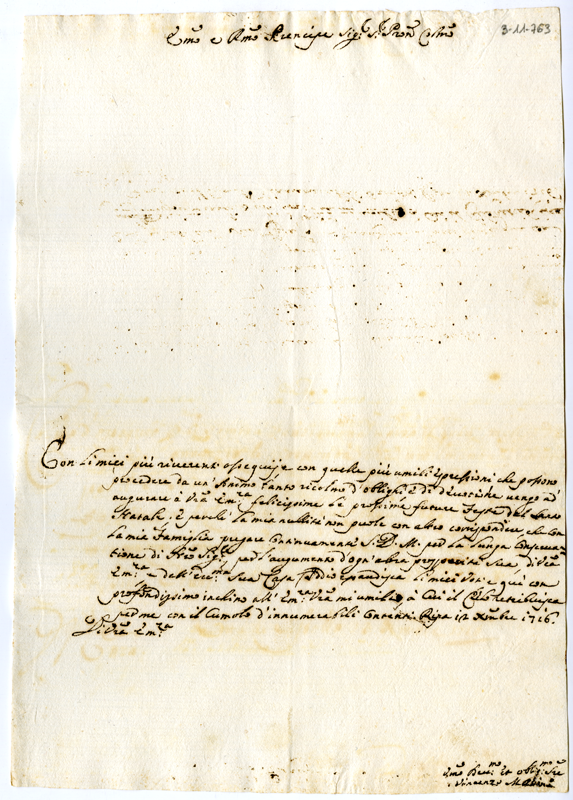 3-11-763
Emo e Rmo Prencipe Sigr. Sr. Pron Colmo
Con li miei più riverenti ossequij e con quelle più umili espressioni che possono
procedere da un Animo tanto ricolmo d'oblighi, e di divotione vengo ad
augurare à Vra Emza felicissime le prossime future Feste del Santo
Natale, e perche la mia nullità non puole con altro corrispondere che con
la mia Famiglia pregare Continuamente S. D. M. per la lunga Conserva-
tione di per l'augumento d'ogn'altra prosperità Sua, di Vra
Emza e dell' Eccma Sua Casa Iddio esaudisca li miei Voti e quì con
profondissimo inchino all' Emza Vra mi umilio à Cui il Cielo retribuisca
per me con il Cumolo d'innumerabili Contenti Ripa 12 Xmbre 1716
Di Vra Emza
Umo Devmo et obligmo Sre
Vincenzo